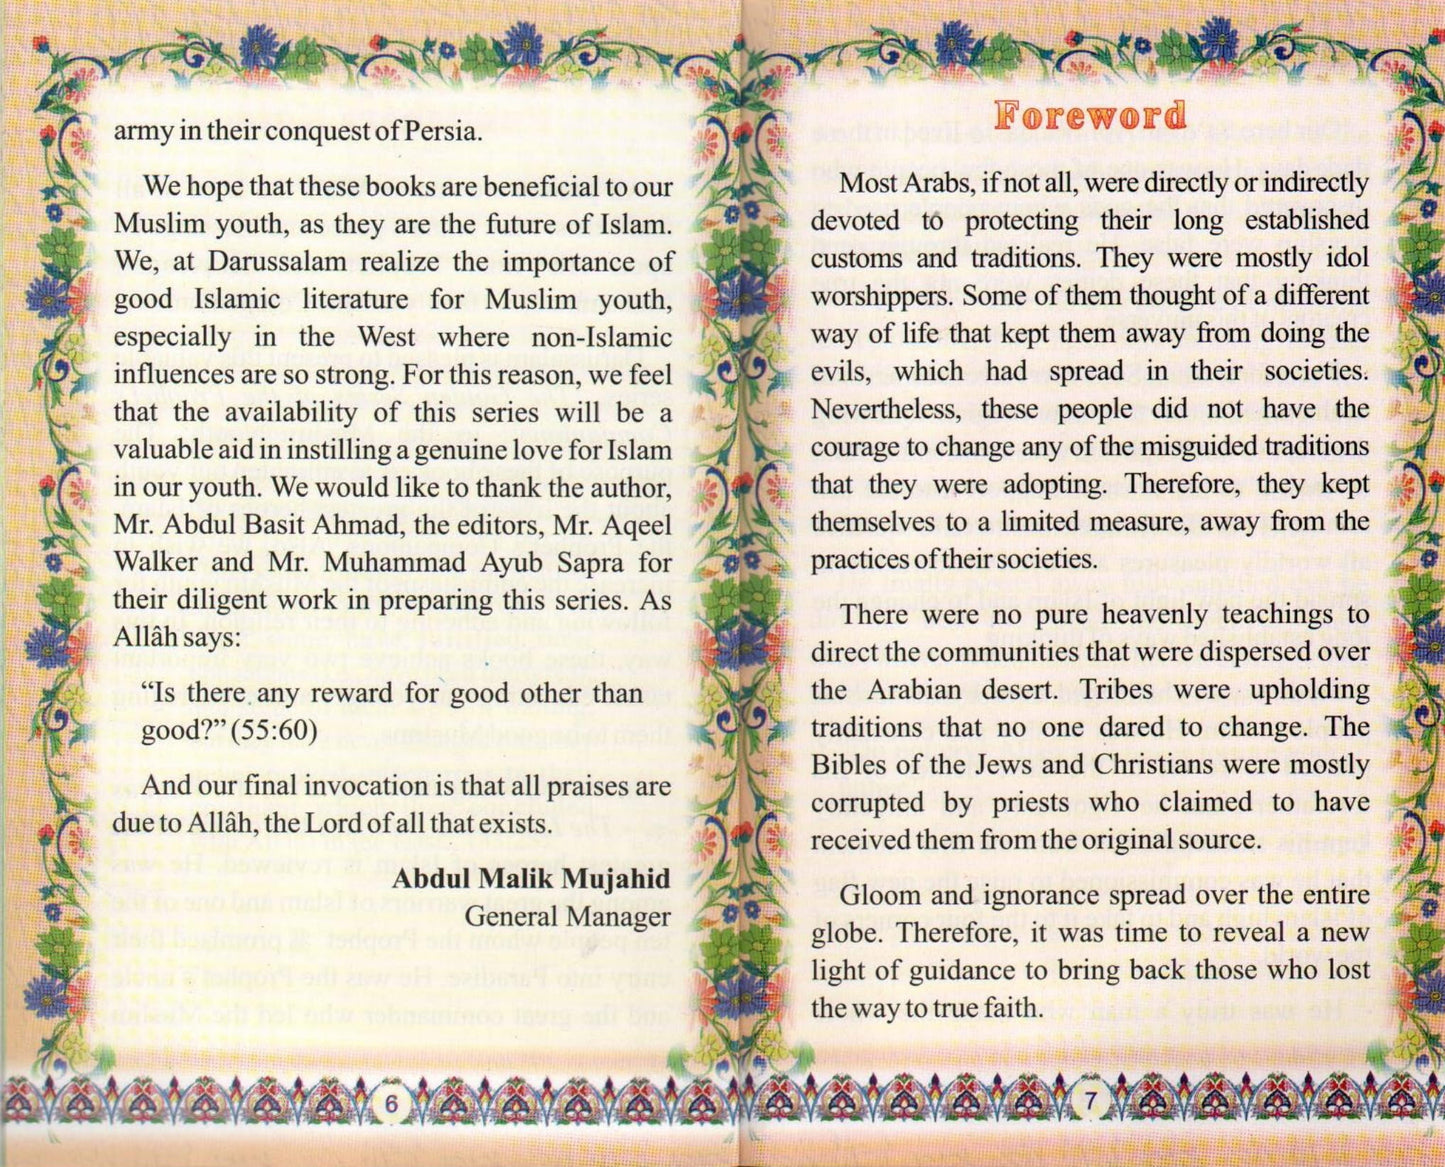 army in their conquest of Persia.
We hope that these books are beneficial to our
Muslim youth, as they are the future of Islam.
We, at Darussalam realize the importance of
good Islamic literature for Muslim youth,
especially in the West where non-Islamic
influences are so strong. For this reason, we feel
that the availability of this series will be a
valuable aid in instilling a genuine love for Islam
in our youth. We would like to thank the author,
Mr. Abdul Basit Ahmad, the editors, Mr. Aqeel
Walker and Mr. Muhammad Ayub Sapra for
their diligent work in preparing this series. As
Allâh says:
“Is there any reward for good other than
good?” (55:60)
And our final invocation is that all praises are
due to Allâh, the Lord of all that exists.
Abdul Malik Mujahid
General Manager
6
Foreword
Most Arabs, if not all, were directly or indirectly
devoted to protecting their long established
customs and traditions. They were mostly idol
worshippers. Some of them thought of a different
way of life that kept them away from doing the
evils, which had spread in their societies.
Nevertheless, these people did not have the
courage to change any of the misguided traditions
that they were adopting. Therefore, they kept
themselves to a limited measure, away from the
practices of their societies.
There were no pure heavenly teachings to
direct the communities that were dispersed over
the Arabian desert. Tribes were upholding
traditions that no one dared to change. The
Bibles of the Jews and Christians were mostly
corrupted by priests who claimed to have
received them from the original source.
Gloom and ignorance spread over the entire
globe. Therefore, it was time to reveal a new
light of guidance to bring back those who lost
the way to true faith.
7